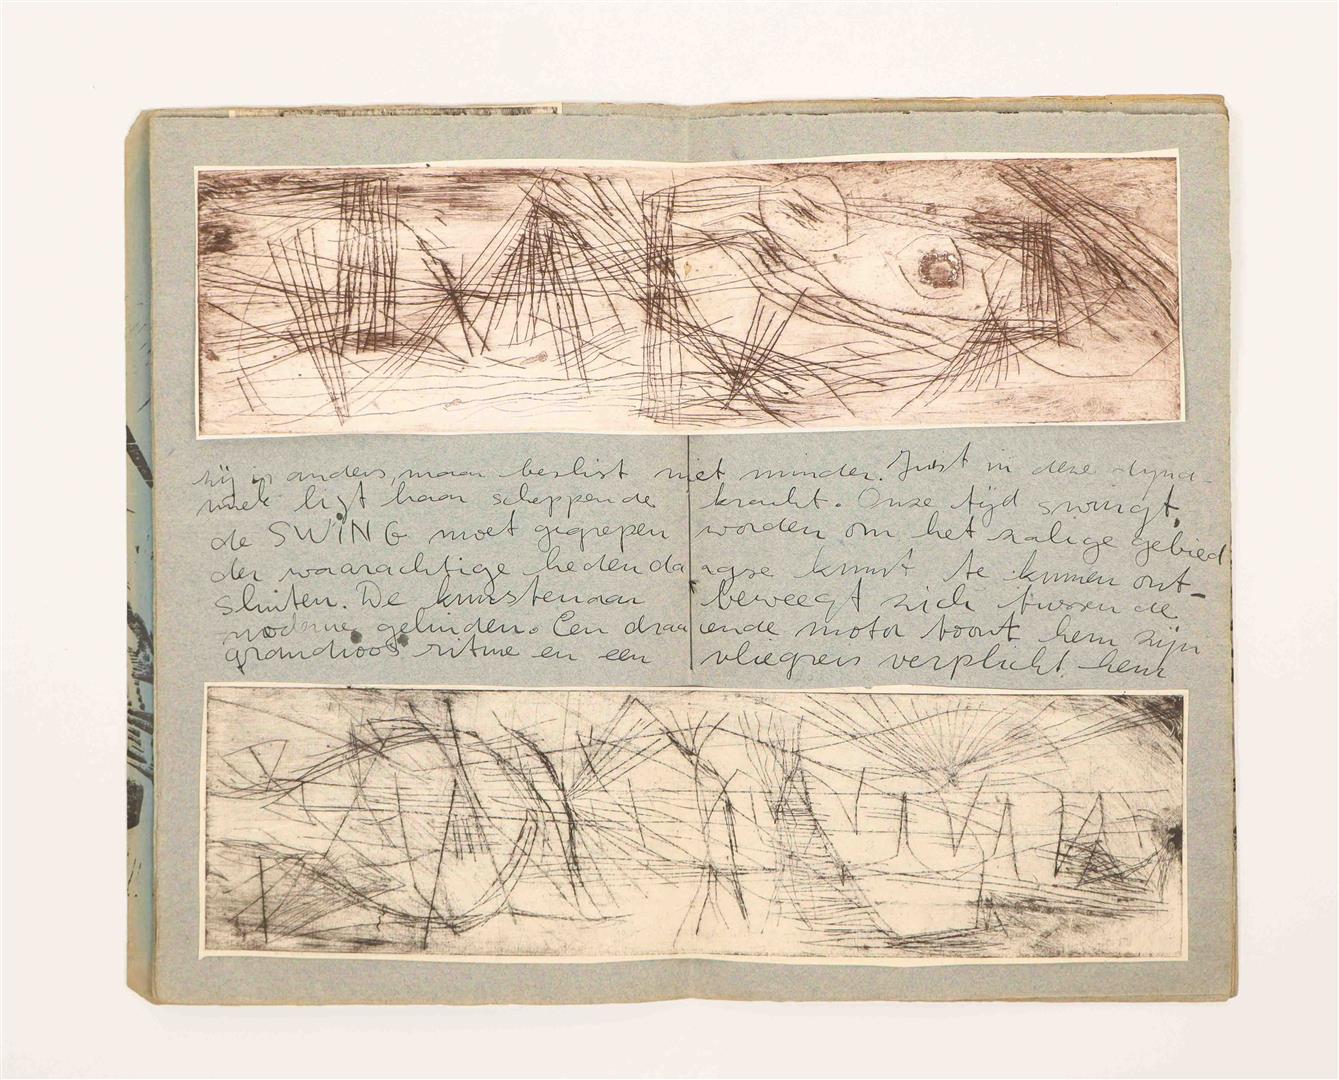 zij is anders, maar beslist niet minder. Juist in deze dyna-
miek ligt haar scheppende kracht. Onze tijd swingt,
de SWING moet gegrepen worden om het zalige gebied
der waarachtige hedendaagse kunst te kunnen ont-
sluiten. De kunstenaar beweegt zich tussen de
moderne geluiden. Een draaiende motor toont hem zijn
grandioos ritme en een vliegreis verplicht hem